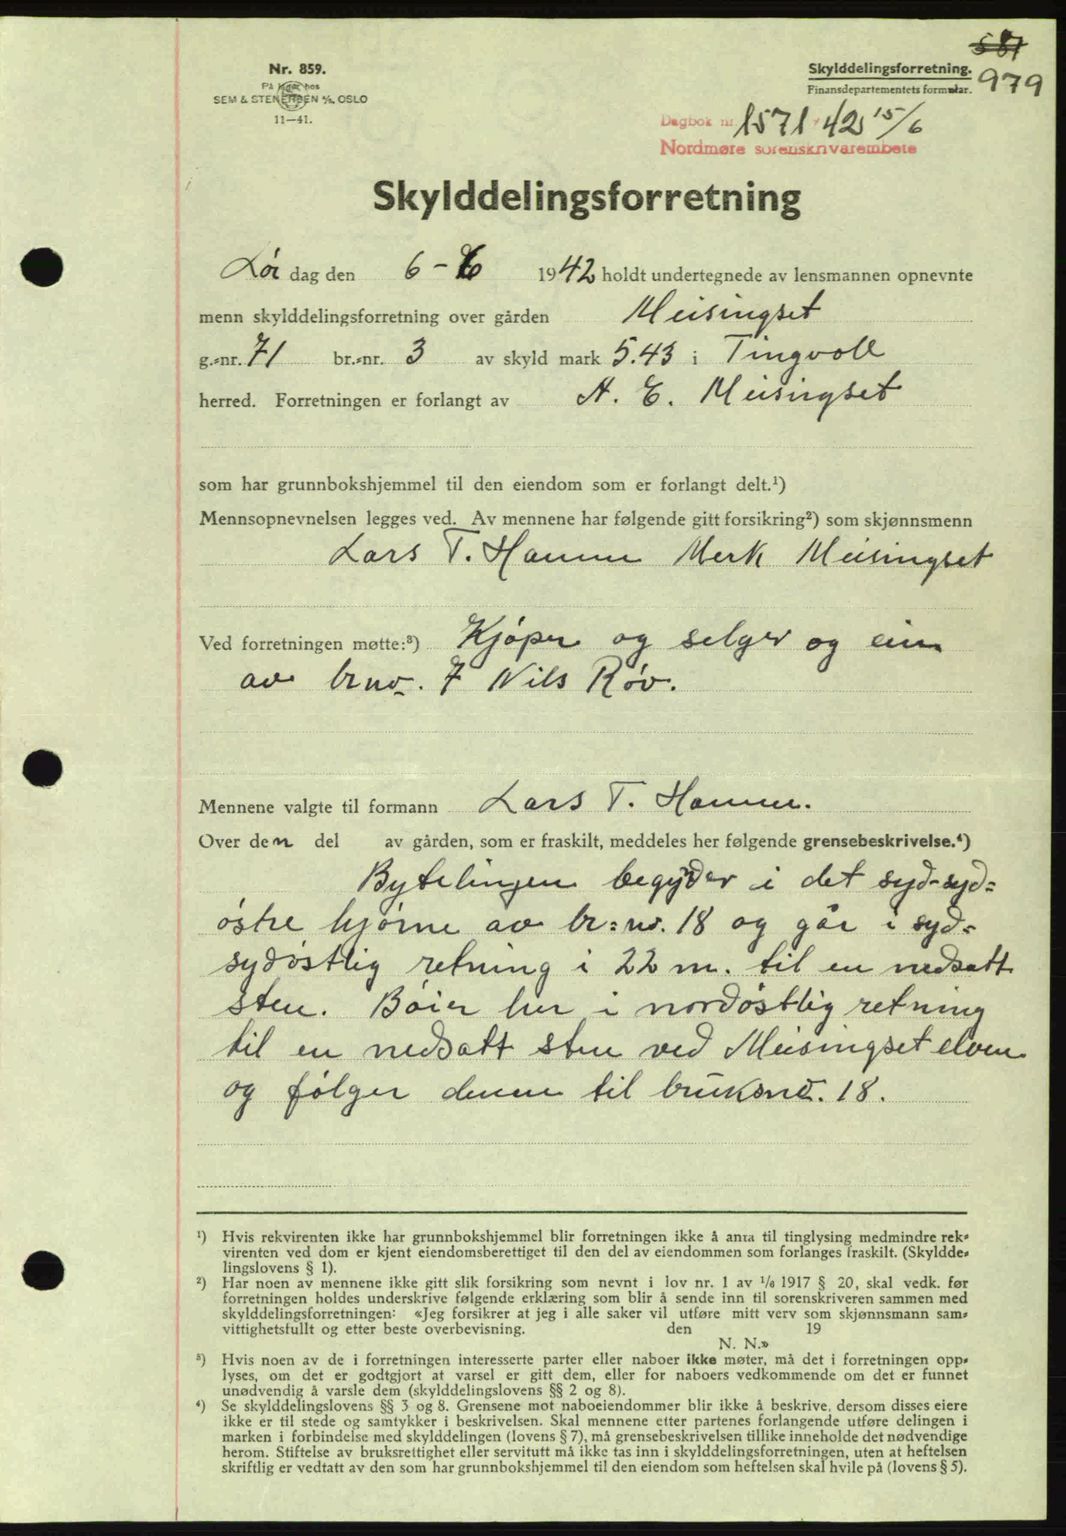 587
979
Nr. 859.
På lager hos
SEM & STENERSEN A/S, OSLO
11—41.
Skylddelingsforretning.
Finansdepartementets formular.
Dagbok nr. 1571 42 15/6
Nordmøre sorenskriverembete
Skylddelingsforretning
Lör dag den 6 - 6 1942 holdt undertegnede av lensmannen opnevnte
menn skylddelingsforretning over gården Meisingset
g.-nr. 71 br.-nr. 3 av skyld mark 5.43 i Tingvoll
herred. Forretningen er forlangt av A. E. Meisingset
som har grunnbokshjemmel til den eiendom som er forlangt delt.¹)
Mennsopnevnelsen legges ved. Av mennene har følgende gitt forsikring²) som skjønnsmenn
Lars T. Hamn Merk Meisingset
Ved forretningen møtte:³) Kjöper og selger og ein
av brnr. 7 Nils Röv.
Mennene valgte til formann Lars T. Hamn.
Over den del av gården, som er fraskilt, meddeles her følgende grensebeskrivelse.⁴)
Bytelingen begynder i det syd-syd=
östre hjörne av br=nr. 18 og går i syd=
sydöstlig retning i 22 m. til en nedsatt
sten. Böier her i nordöstlig retning
til en nedsatt sten ved Meisingset elven
og fölger denne til bruksnr. 18.
¹) Hvis rekvirenten ikke har grunnbokshjemmel blir forretningen ikke å anta til tinglysing medmindre rek-
virenten ved dom er kjent eiendomsberettiget til den del av eiendommen som forlanges fraskilt. (Skyldde-
lingslovens § 1).
²) Har noen av mennene ikke gitt slik forsikring som nevnt i lov nr. 1 av 1/8 1917 § 20, skal vedk. før
forretningen holdes underskrive følgende erklæring som blir å sende inn til sorenskriveren sammen med
skylddelingsforretningen: «Jeg forsikrer at jeg i alle saker vil utføre mitt verv som skjønnsmann sam-
vittighetsfullt og etter beste overbevisning. den 19
N. N.»
³) Hvis noen av de i forretningen interesserte parter eller naboer ikke møter, må det i forretningen opp-
lyses, om det er godtgjort at varsel er gitt dem, eller for naboers vedkommende om det er funnet
unødvendig å varsle dem (skylddelingslovens §§ 2 og 8).
⁴) Se skylddelingslovens §§ 3 og 8. Grensene mot naboeiendommer blir ikke å beskrive, dersom disses eiere
ikke er til stede og samtykker i beskrivelsen. Skal mennene etter partenes forlangende utføre delingen i
marken i forbindelse med skylddelingen (lovens § 7), må grensebeskrivelsen tillike inneholde det nødvendige
herom. Stiftelse av bruksrettighet eller servitutt må ikke tas inn i skylddelingsforretningen, uten at heftelsen
skriftlig er vedtatt av den som har grunnbokshjemmel til den eiendom som heftelsen skal hvile på (lovens § 5).